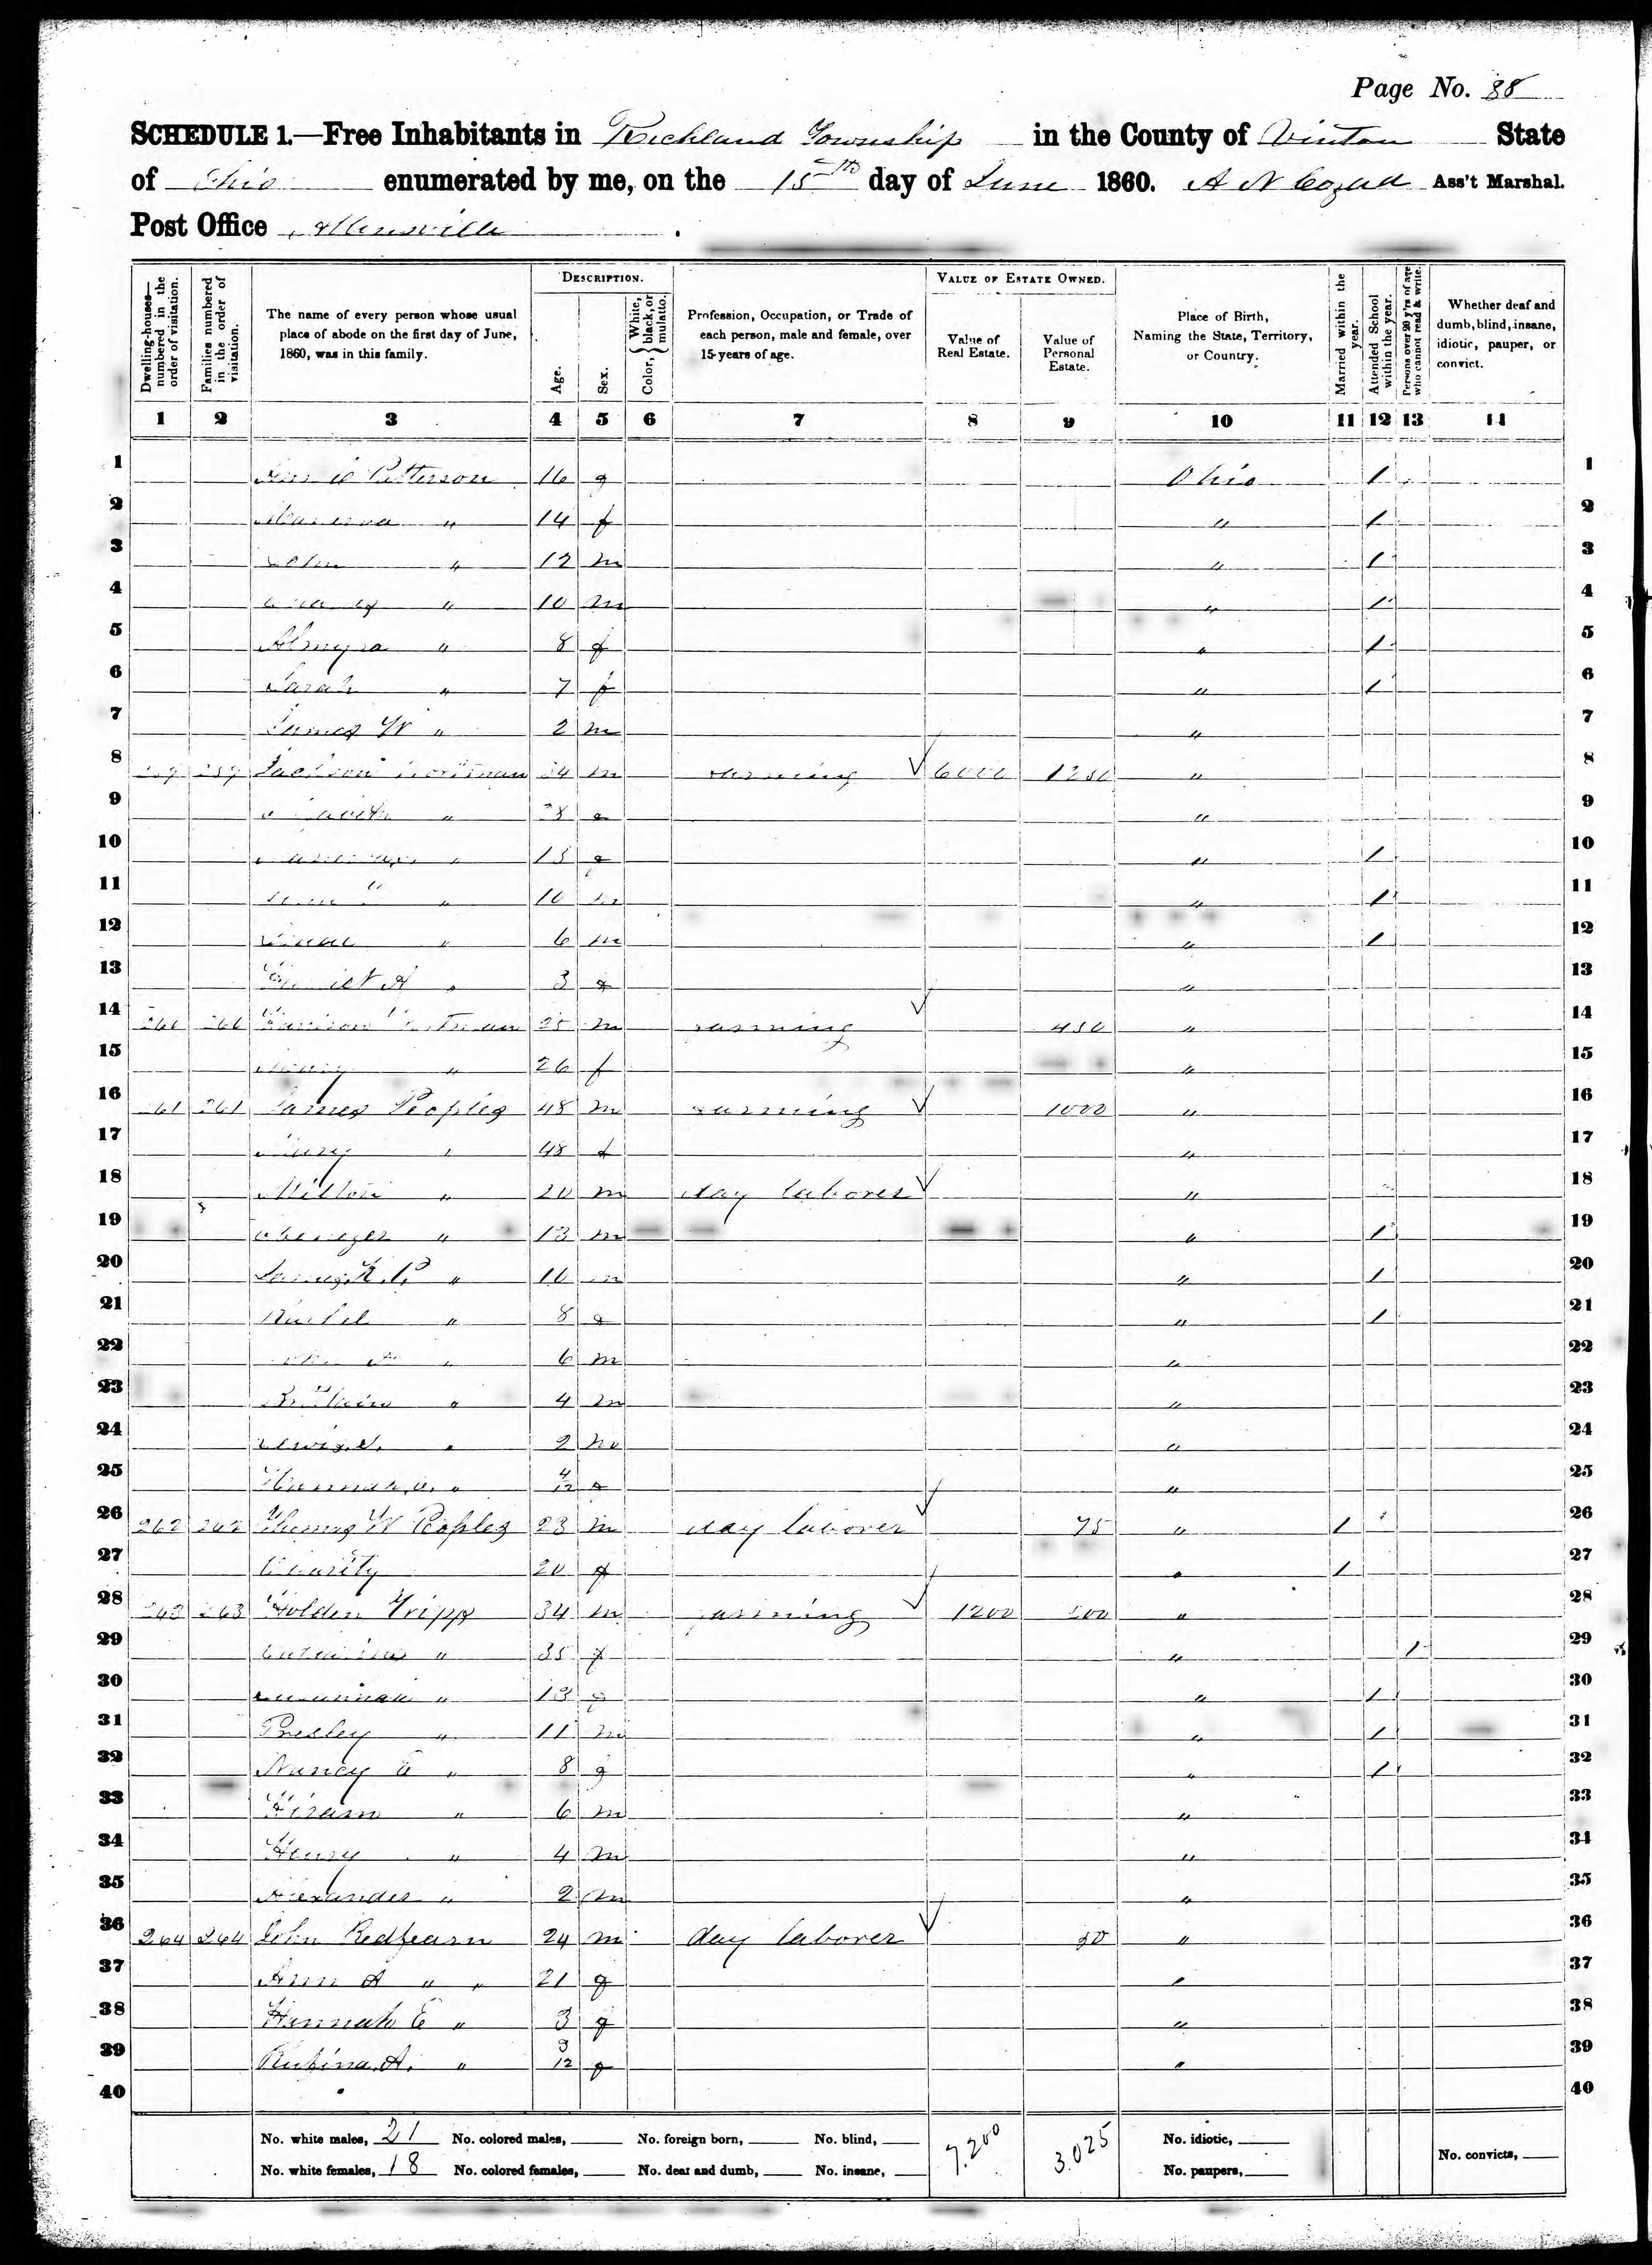 Page No. 88
SCHEDULE 1.—Free Inhabitants in Richland Township in the County of Vinton State
of Ohio enumerated by me, on the 15th day of June 1860. A N Cozad Ass't Marshal.
Post Office Allensville
Dwelling-houses—numbered in the order of visitation.
Families numbered in the order of visitation.
The name of every person whose usual place of abode on the first day of June, 1860, was in this family.
DESCRIPTION.
Age.
Sex.
Color, White, black, or mulatto.
Profession, Occupation, or Trade of each person, male and female, over 15 years of age.
VALUE OF ESTATE OWNED.
Value of Real Estate.
Value of Personal Estate.
Place of Birth, Naming the State, Territory, or Country.
Married within the year.
Attended School within the year.
Persons over 20 y'rs of age who cannot read & write.
Whether deaf and dumb, blind, insane, idiotic, pauper, or convict.
1 2 3 4 5 6 7 8 9 10 11 12 13 14
1 Patterson 16 f Ohio 1 1
2 " 14 f " 1 2
3 John " 12 m " 1 3
4 " 10 m " 1 4
5 Almyra " 8 f " 1 5
6 Sarah " 7 f " 1 6
7 James W " 2 m " 7
8 259 259 Jackson 34 m farming 6000 " 8
9 " f " 9
10 " f " 1 10
11 " 10 m " 1 11
12 " 6 m " 1 12
13 Harriet A " 3 f " 13
14 260 260 Harrison 25 m farming 450 " 14
15 " 26 f " 15
16 261 261 James Peoples 48 m farming 1000 " 16
17 Mary " 48 f " 17
18 Milton " 20 m day laborer " 18
19 Ebenezer " 13 m " 1 19
20 James K. P. " 10 m " 1 20
21 Rachel " 8 f " 1 21
22 " 6 m " 22
23 " 4 m " 23
24 Lewis " 2 m " 24
25 Hannah " 4/12 f " 25
26 262 262 Thomas W Peoples 23 m day laborer 75 " 1 26
27 Charity 20 f " 1 27
28 263 263 Holden Tripp 34 m farming 1200 " 28
29 Catharine " 35 f " 1 29
30 Susannah " 13 f " 1 30
31 Presley " 11 m " 1 31
32 Nancy E " 8 f " 1 32
33 Hiram " 6 m " 33
34 Henry " 4 m " 34
35 Alexander " 2 m " 35
36 264 264 John Redfearn 24 m day laborer 50 " 36
37 Ann A " " 21 f " 37
38 Hannah E " 3 f " 38
39 Rufina A. " 9/12 f " 39
40 40
No. white males, 21 No. colored males, No. foreign born, No. blind, 7.200 3.025 No. idiotic,
No. white females, 18 No. colored females, No. deaf and dumb, No. insane, No. paupers, No. convicts,